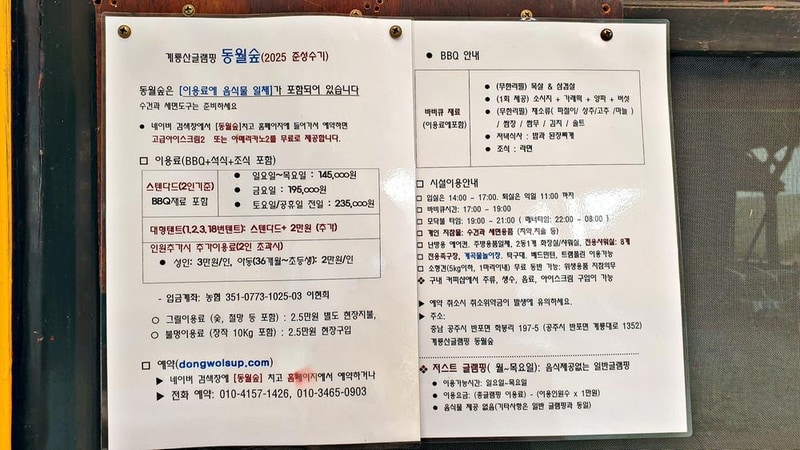 계룡산글램핑 동월숲(2025 준성수기)
동월숲은 [이용료에 음식물 일체]가 포함되어 있습니다
수건과 세면도구는 준비하세요
• 네이버 검색창에서 [동월숲]치고 홈페이지에 들어가서 예약하면
고급아이스크림2 또는 아메리카노2를 무료로 제공합니다.
□ 이용료(BBQ+석식+조식 포함)
스텐다드(2인기준)
BBQ재료 포함
• 일요일~목요일 : 145,000원
• 금요일 : 195,000원
• 토요일/공휴일 전일 : 235,000원
대형텐트(1,2,3,18번텐트): 스텐다드+ 2만원 (추가)
인원추가시 추가이용료(2인 초과시)
• 성인: 3만원/인, 아동(36개월~초등생): 2만원/인
- 입금계좌: 농협 351-0773-1025-03 이현희
○ 그릴이용료 (숯, 철망 등 포함) : 2.5만원 별도 현장지불,
○ 불멍이용료 (장작 10Kg 포함) : 2.5만원 현장구입
□ 예약(dongwolsup.com)
▶ 네이버 검색창에 [동월숲] 치고 홈페이지에서 예약하거나
▶ 전화 예약: 010-4157-1426, 010-3465-0903
• BBQ 안내
바비큐 재료
(이용료에포함)
• (무한리필) 목살 & 삼겹살
• (1회 제공) 소시지 + 가래떡 + 양파 + 버섯
• (무한리필) 채소류( 파절이/ 상추/고추 /마늘 )
/ 쌈장 / 쌈무 / 김치 / 솔트
• 저녁식사 : 밥과 된장찌개
• 조식 : 라면
□ 시설이용안내
□ 입실은 14:00 - 17:00. 퇴실은 익일 11:00 까지
□ 바비큐시간: 17:00 - 19:00
□ 모닥불 타임: 19:00 - 21:00 ( 매너타임: 22:00 - 08:00 )
□ 개인 지참물: 수건과 세면용품 (치약,치솔 등)
□ 난방용 에어컨, 주방용품일체, 2동1개 화장실/샤워실, 전용샤워실: 8개
□ 전용족구장, 계곡물놀이장, 탁구대, 베드민턴, 트램플린 이용가능
□ 소형견(5kg이하, 1마리이내) 무료 동반 가능: 위생용품 지참의무
❖ 구내 커피샵에서 주류, 생수, 음료, 아이스크림 구입이 가능
▶ 예약 취소시 취소위약금이 발생에 유의하세요.
▶ 주소:
충남 공주시 반포면 학봉리 197-5 (공주시 반포면 계룡대로 1352)
계룡산글램핑 동월숲
❖ 저스트 글램핑( 월~목요일): 음식제공없는 일반글램핑
• 이용가능시간: 일요일-목요일
• 이용요금: (총글램핑 이용료) - (이용인원수 x 1만원)
• 음식물 제공 없음(기타사항은 일반 글램핑과 동일)